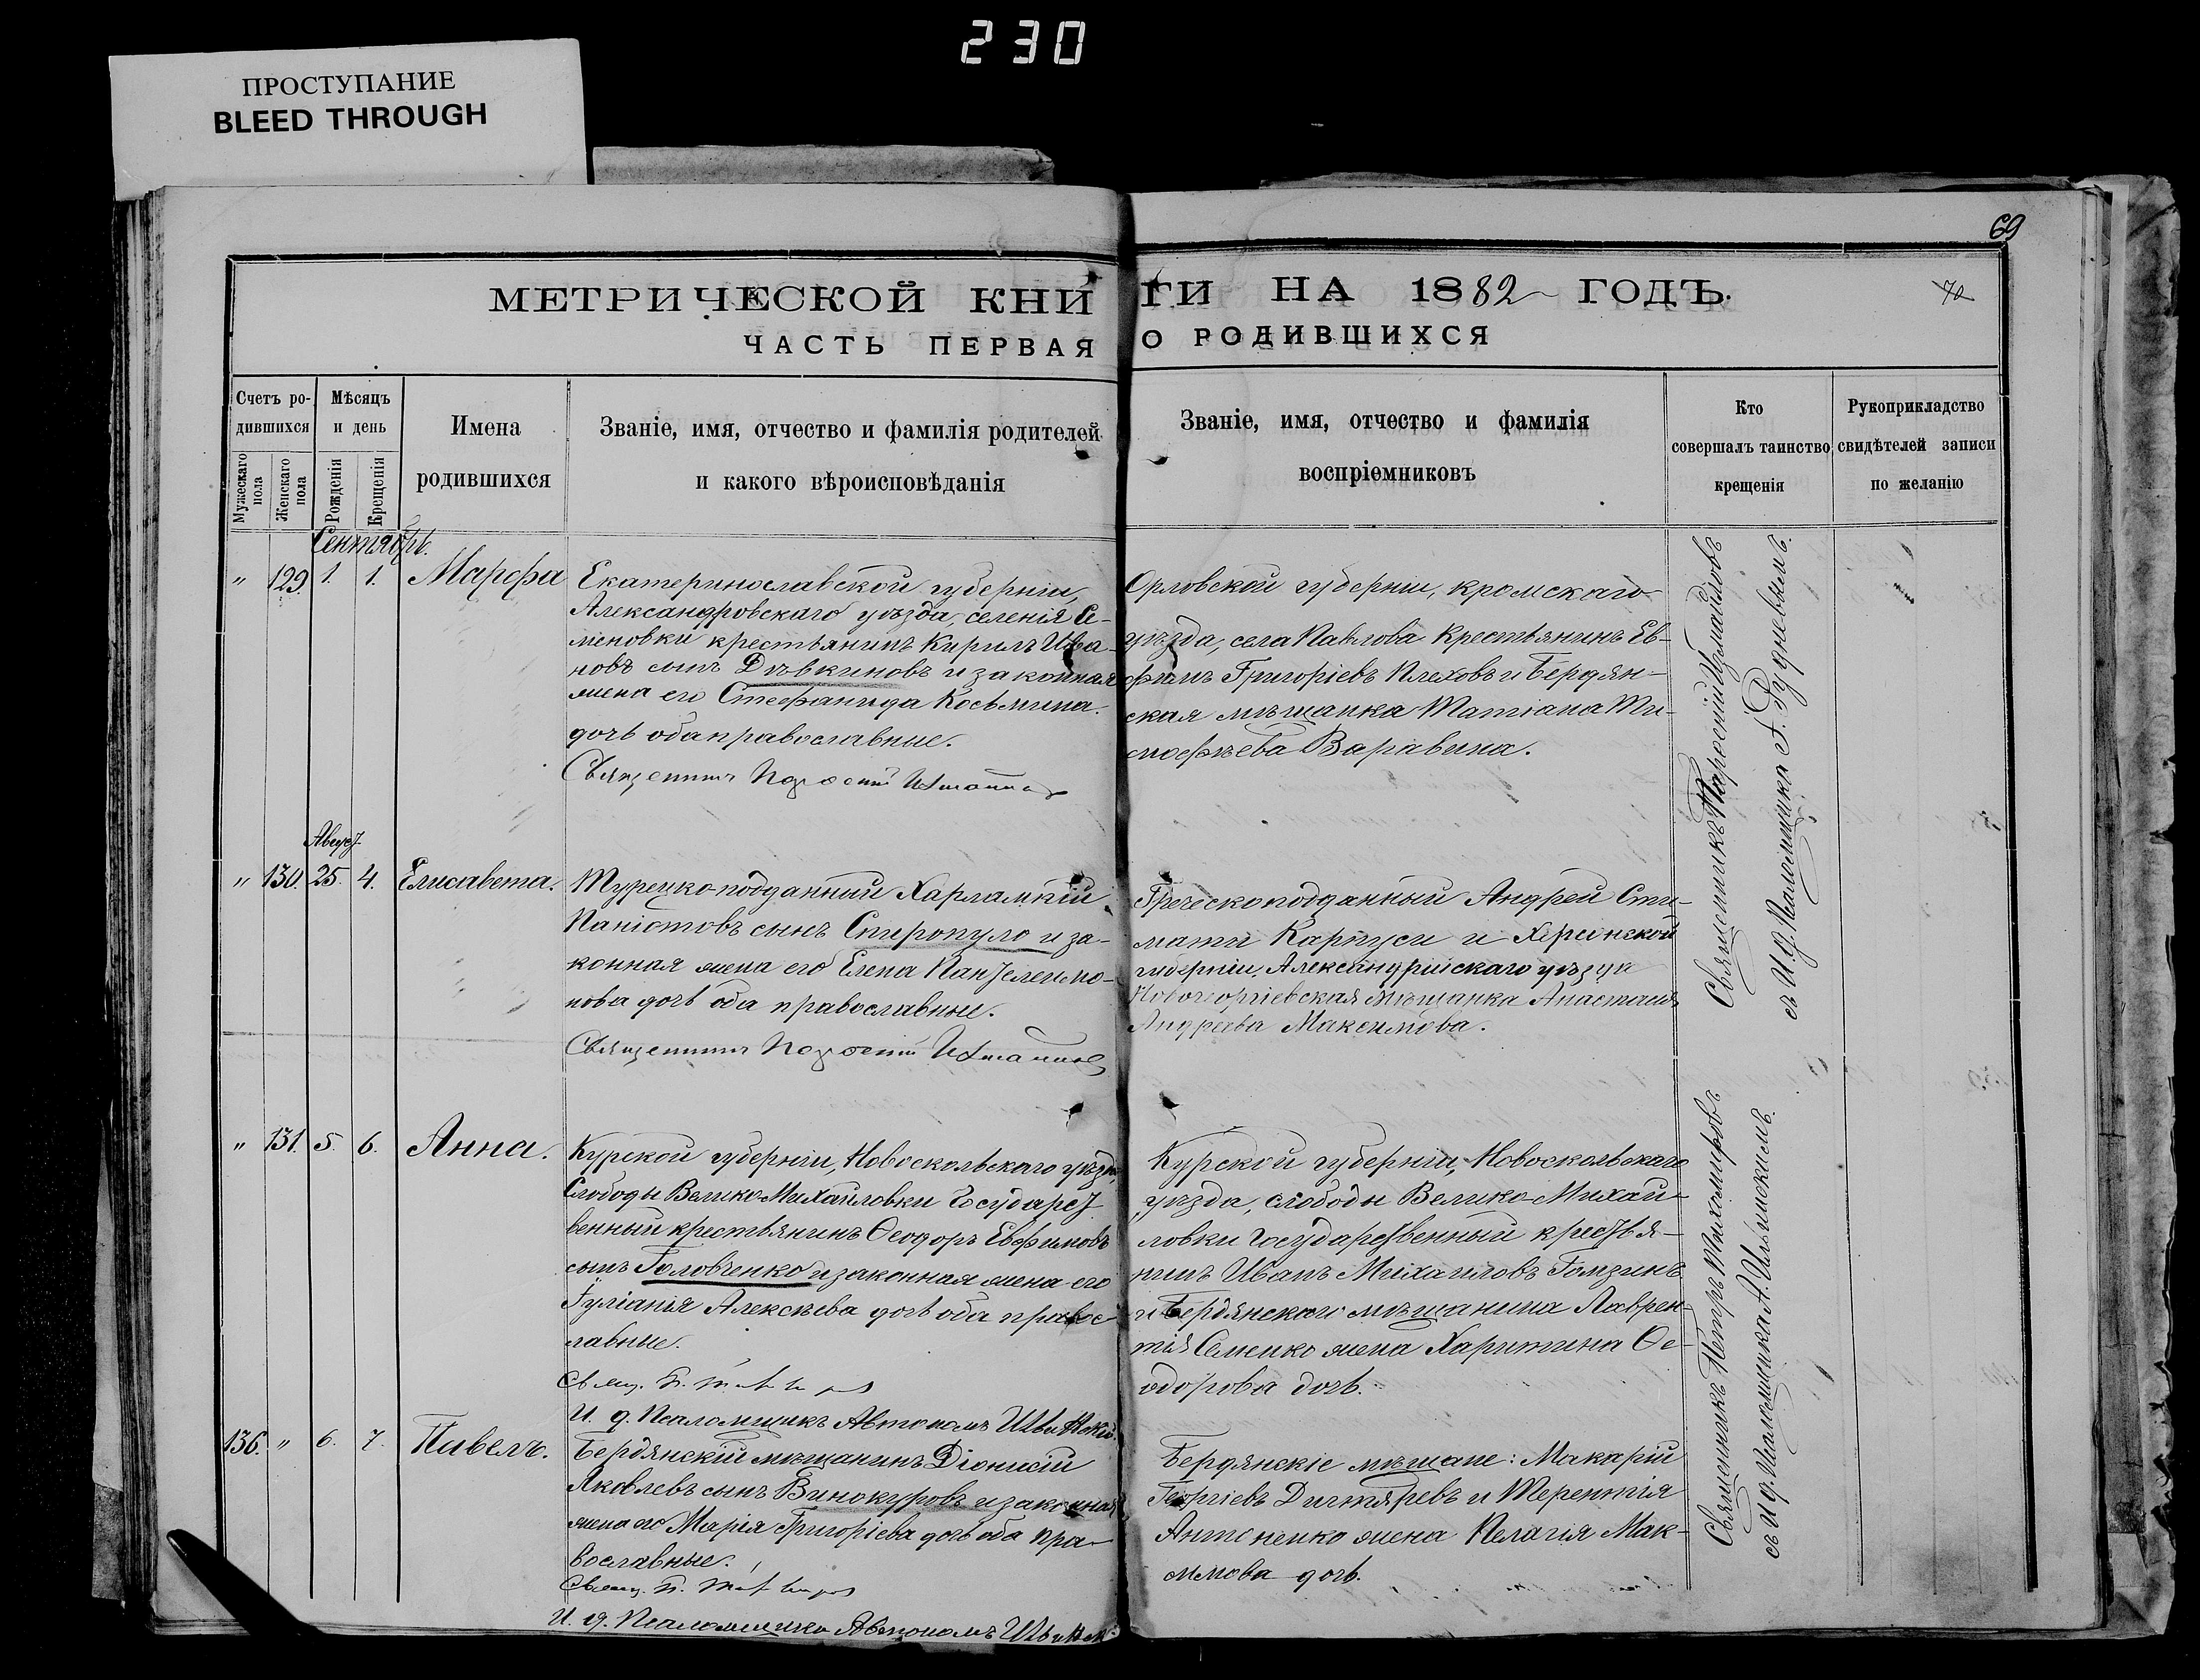 230
ПРОСТУПАНИЕ
BLEED THROUGH
69
МЕТРИЧЕСКОЙ КНИГИ НА 1882 ГОДЪ.
70
ЧАСТЬ ПЕРВАЯ О РОДИВШИХСЯ
Счетъ ро-
дившихся
Мужескаго пола
Женскаго пола
Мѣсяцъ
и день
Рожденія
Крещенія
Имена
родившихся
Званіе, имя, отчество и фамилія родителей
и какого вѣроисповѣданія
Званіе, имя, отчество и фамилія
воспріемниковъ
Кто
совершалъ таинство
крещенія
Рукоприкладство
свидѣтелей записи
по желанію
Сентябрь.
" 129. 1. 1. Марфа
Екатеринославской губерніи,
Александровскаго уѣзда, селенія Се-
меновки крестьянинъ Кирилъ Ива-
новъ сынъ Дѣвкиновъ и законная
жена его Стефанида Косьмина
дочь оба православные.
Священникъ
Орловской губерніи, кромскаго
уѣзда, села Павлова крестьянинъ Ев-
фимъ Григоріевъ Плеховъ и Бердян-
ская мѣщанка Татіана Ти-
мофѣева Варавина.
Август
" 130. 25. 4. Елисавета.
Турецко-подданный Харламкій
Паніотовъ сынъ Спиропуло и за-
конная жена его Елена Пантелеимо-
нова дочь оба православные.
Священникъ
Греческоподданный Андрей Сти-
мати Карпуси и Херсонской
губерніи, Александрійскаго уѣзда
Новогеоргіевская мѣщанка Анастасія
Андреева Максимова.
Священникъ Измайловъ
съ И. д. Псаломщика Г. Рудневымъ.
" 131. 5. 6. Анна.
Курской губерніи, Новоскольскаго уѣзда,
Слободы Велико-Михайловки Государст
венный крестьянинъ Ѳеодоръ Евфимовъ
сынъ Головченко и законная жена его
Іуліанія Алексѣева дочь оба правос-
лавные.
Свящ. П.
И. д. Псаломщикъ Автономъ
Курской губерніи, Новоскольскаго
уѣзда, слободы Велико-Михай-
ловки Государственный крестья-
нинъ Иванъ Михаиловъ Гомзинъ
и Бердянскаго мѣщанина Лаврен-
тія Семенко жена Харитина Ѳе-
одорова дочь.
136. " 6. 7. Павелъ.
Бердянскій мѣщанинъ Діонисій
Яковлевъ сынъ Винокуровъ и законная
жена его Марія Григоріева дочь оба пра-
вославные.
Свящ. П.
И. д. Псаломщика Автономъ
Бердянскіе мѣщане: Макарій
Георгіевъ Дигтяревъ и Терентія
Антоненко жена Пелагія Мак-
симова дочь.
Священникъ Петръ Тихомировъ
съ И. д. Псаломщика А.